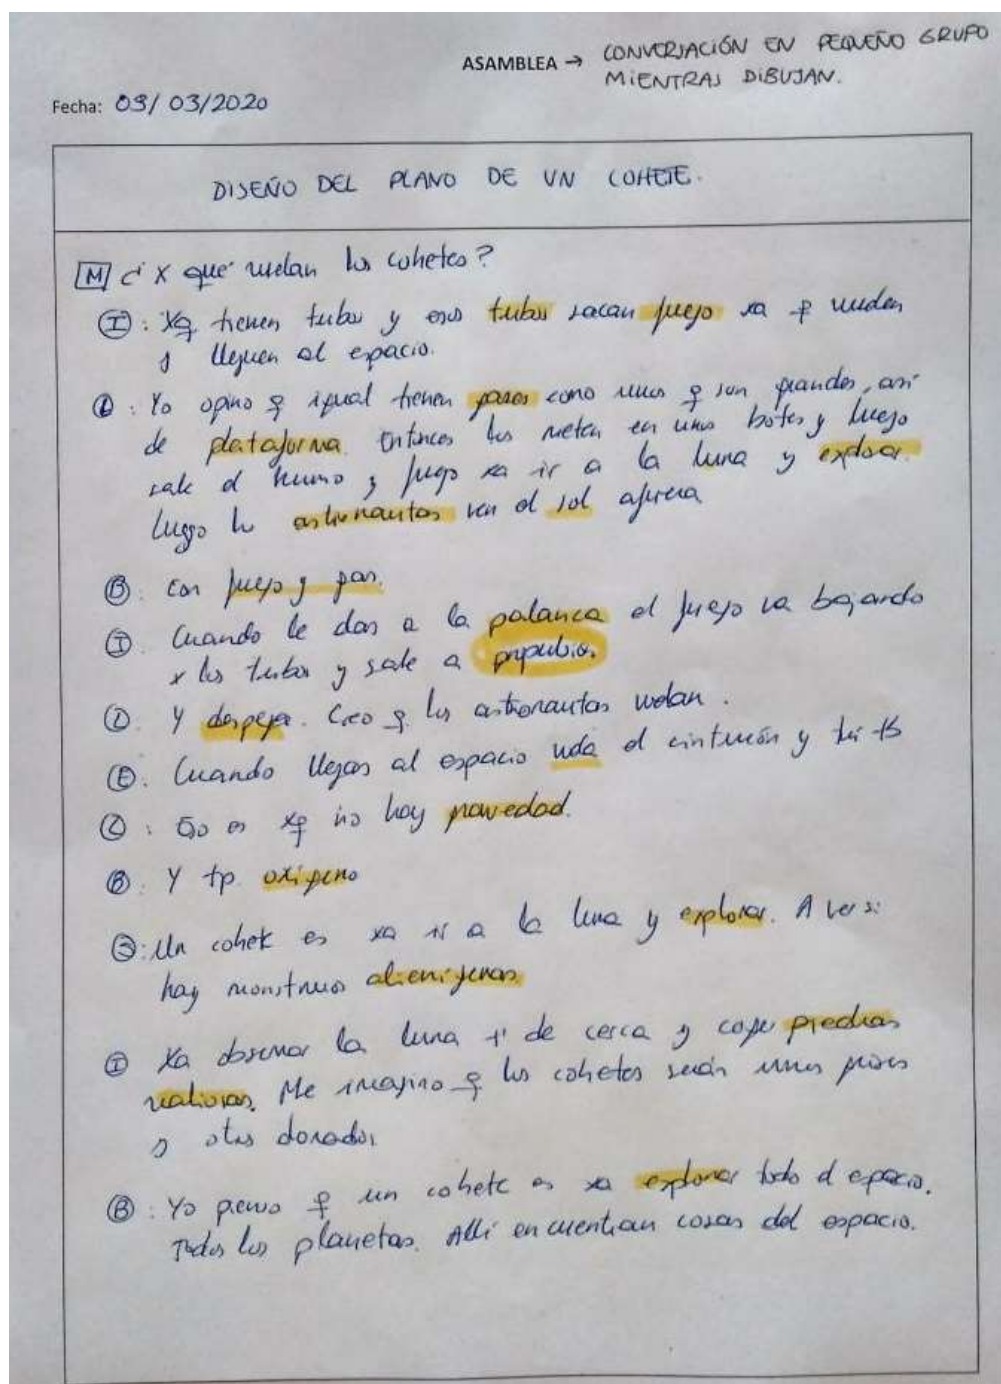 ASAMBLEA → CONVERSACIÓN EN PEQUEÑO GRUPO
MIENTRAS DIBUJAN.
Fecha: 09/03/2020
DISEÑO DEL PLANO DE UN COHETE.
M ¿X qué vuelan los cohetes?
I: Xq tienen tubos y esos tubos sacan fuego xa q vuelen
y lleguen al espacio.
: Yo opino q igual tienen gases como unos q son grandes, así
de plataforma. Entonces los meten en unos botes y luego
sale el humo y fuego xa ir a la luna y explorar.
Luego los astronautas ven el sol afuera
B: Con fuego y gas.
I. Cuando le das a la palanca el fuego va bajando
x los tubos y sale a propulsión.
D. Y despega. Creo q los astronautas vuelan.
E. Cuando llegas al espacio vuela el cinturón y tú tb
: Eso es xq no hay gravedad.
B: Y tp. oxígeno
: Un cohete es xa ir a la luna y explorar. A ver si
hay monstruos alienígenas.
I Xa observar la luna + de cerca y coger piedras
valiosas. Me imagino q los cohetes serán unos grises
y otros dorados.
B: Yo pienso q un cohete es xa explorar todo el espacio.
Todos los planetas. Allí encuentran cosas del espacio.